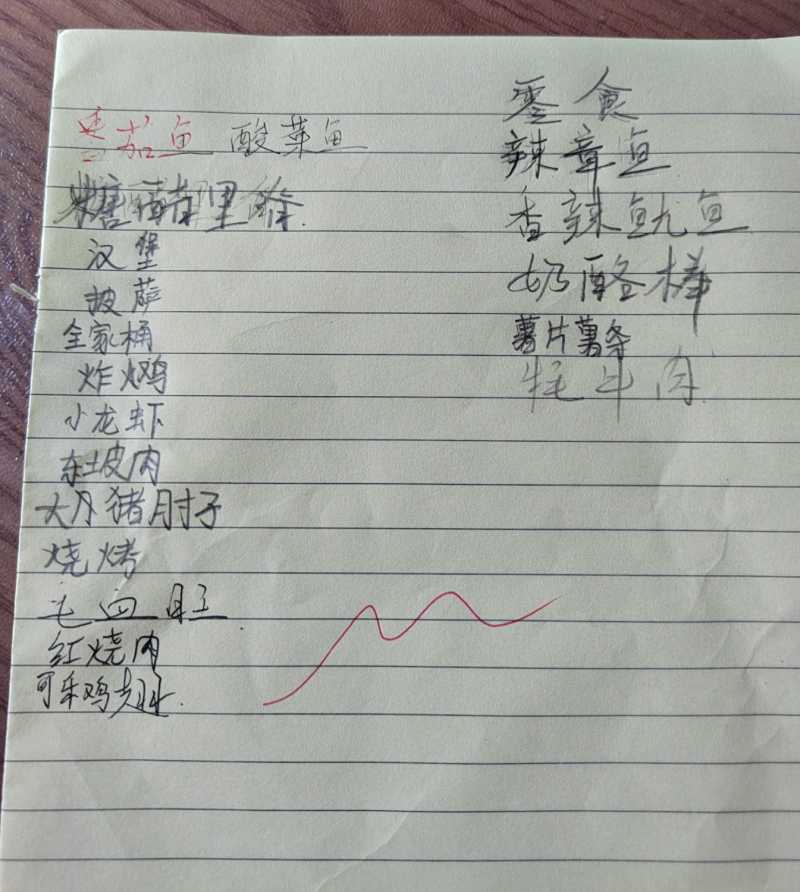 茄鱼 酸菜鱼
糖醋里脊
汉堡
披萨
全家桶
炸鸡
小龙虾
东坡肉
大猪肘子
烧烤
毛四旺
红烧肉
可乐鸡翅
零食
辣章鱼
香辣鱿鱼
奶酪棒
薯片薯条
牦牛肉